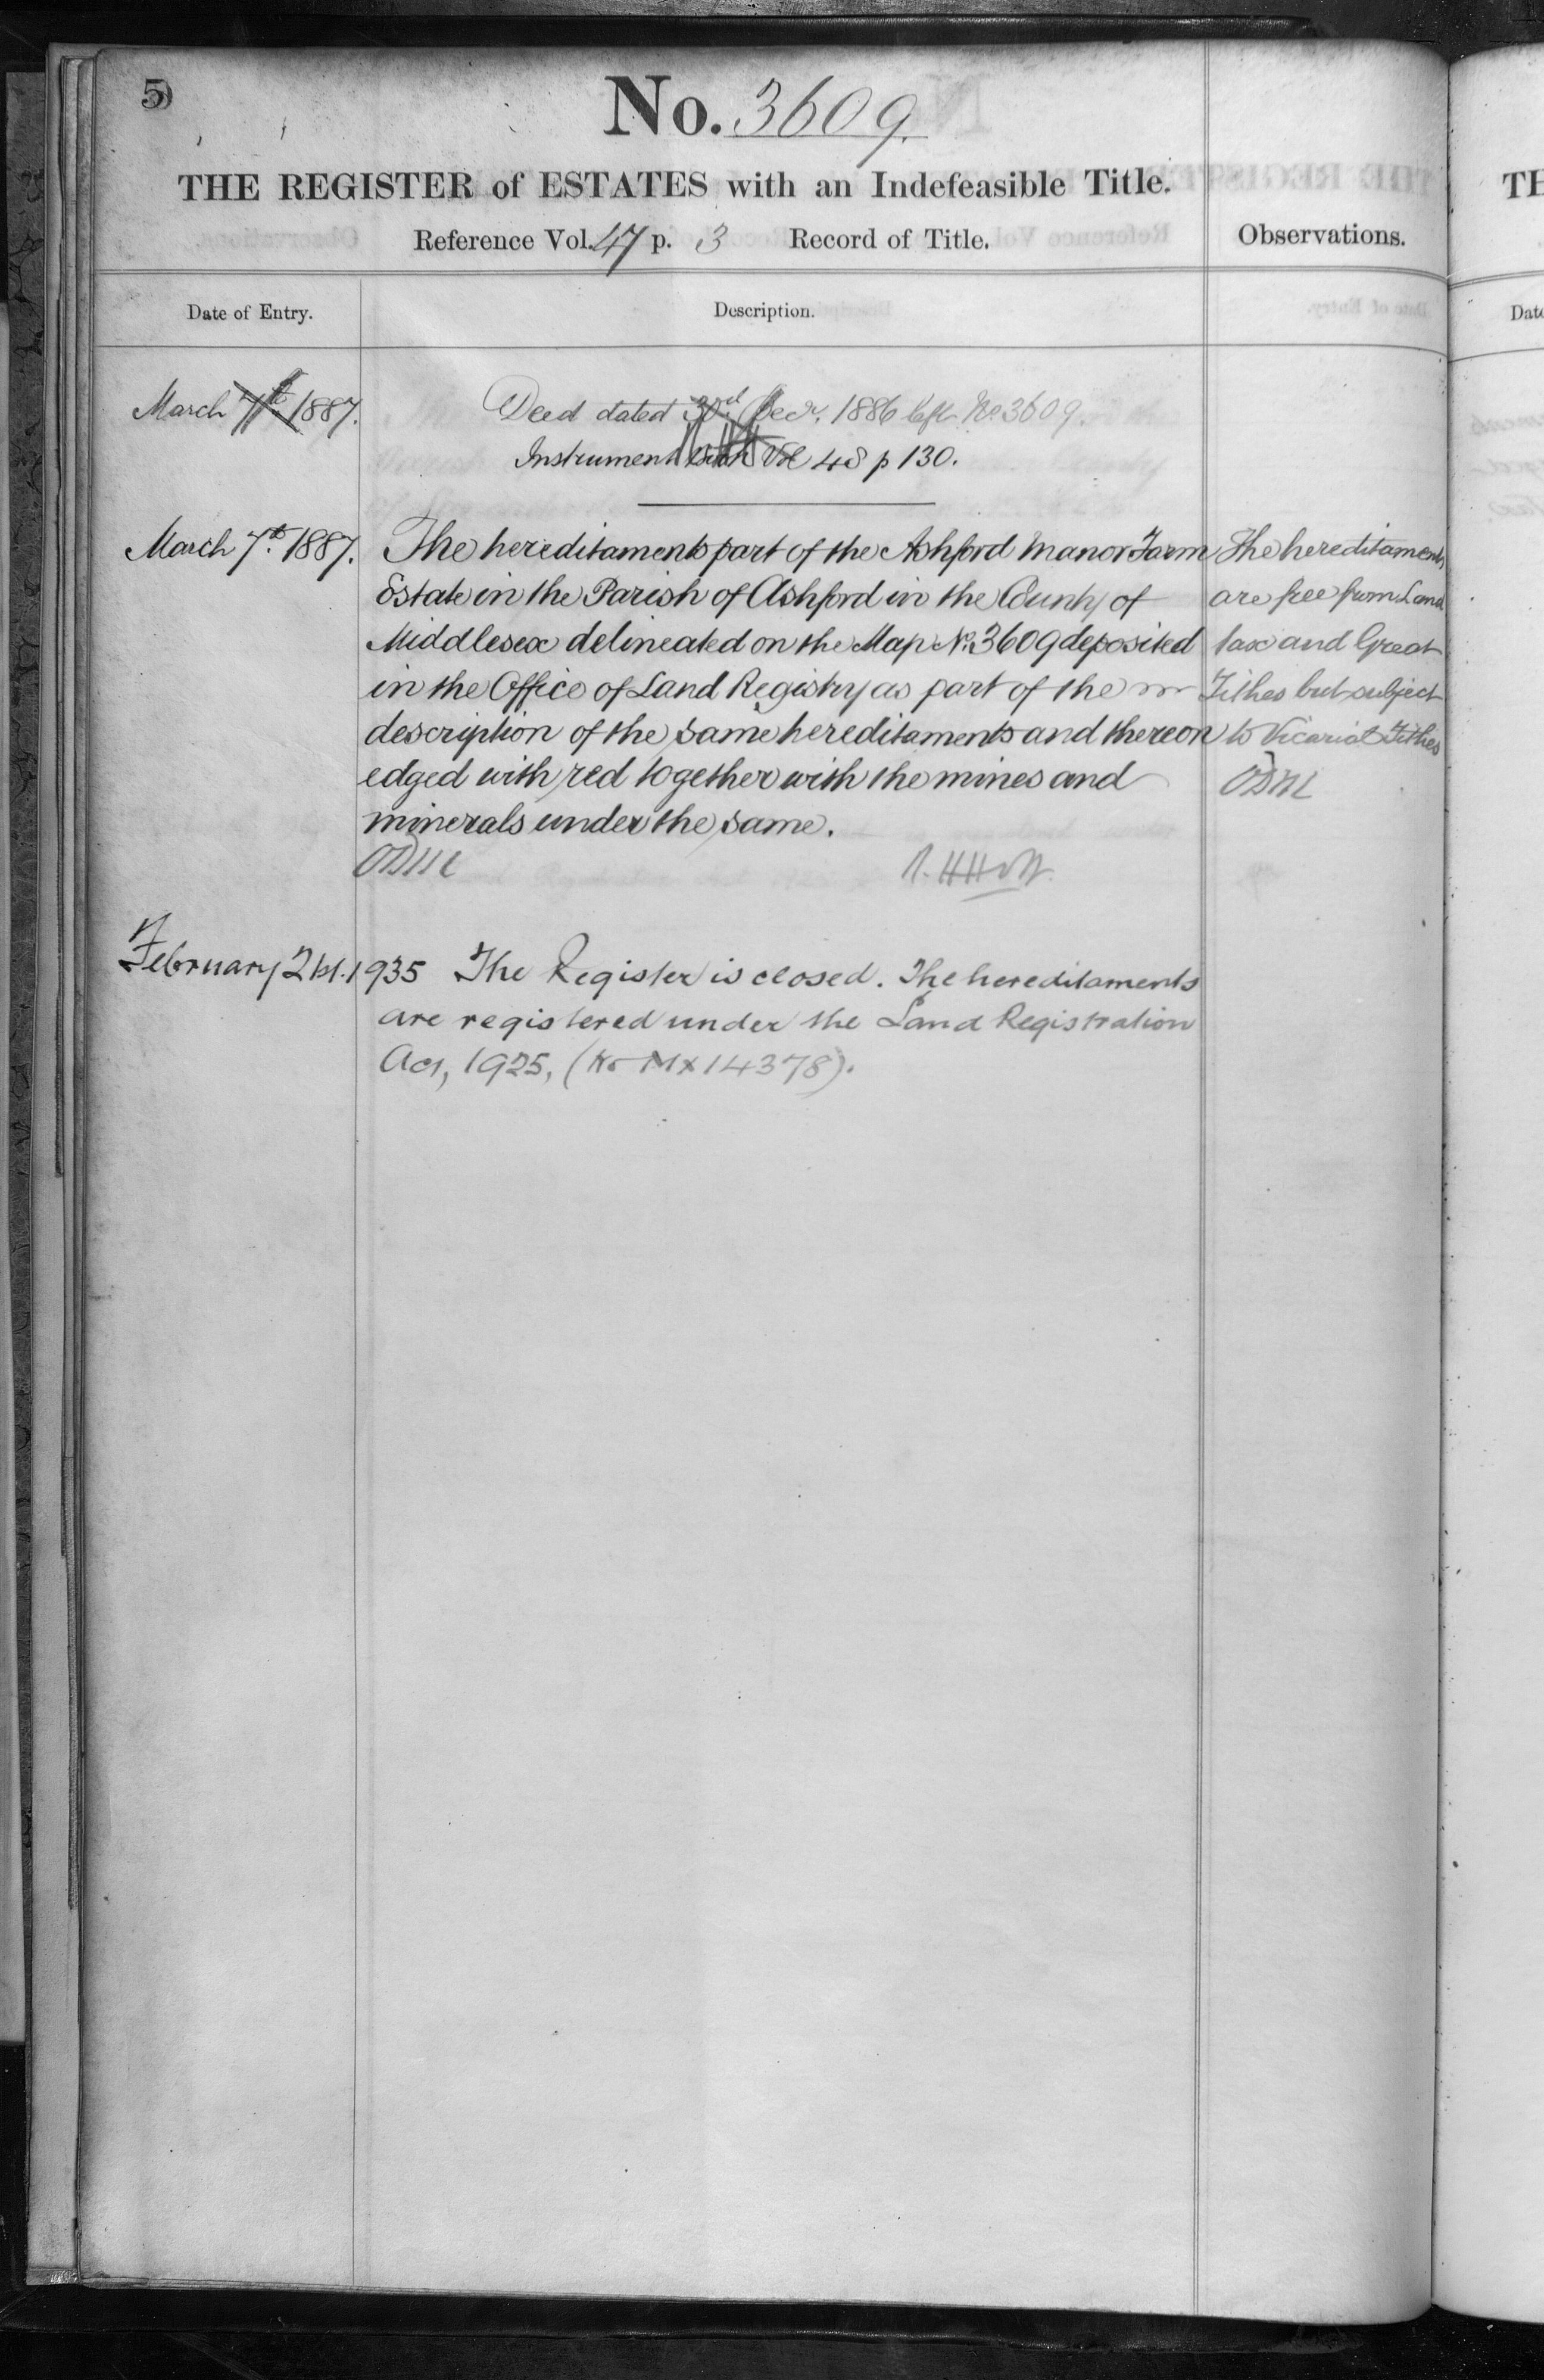 5
No. 3609.
THE REGISTER of ESTATES with an Indefeasible Title.
Reference Vol. 47 p. 3 Record of Title.
Observations.
Date of Entry.
Description.
March 7th 1887.
Deed dated 30th Decr. 1886 left No. 3609.
Instrument Book Vol 48 p 130.
March 7th 1887.
The hereditaments part of the Ashford Manor Farm
Estate in the Parish of Ashford in the County of
Middlesex delineated on the Map No. 3609 deposited
in the Office of Land Registry as part of the
description of the same hereditaments and thereon
edged with red together with the mines and
minerals under the same.
The hereditaments
are free from Land
tax and Great
Tithes but subject
to Vicarial Tithes
February 21st. 1935 The Register is closed. The hereditaments
are registered under the Land Registration
Act, 1925, (No MX14378).
TH
Date